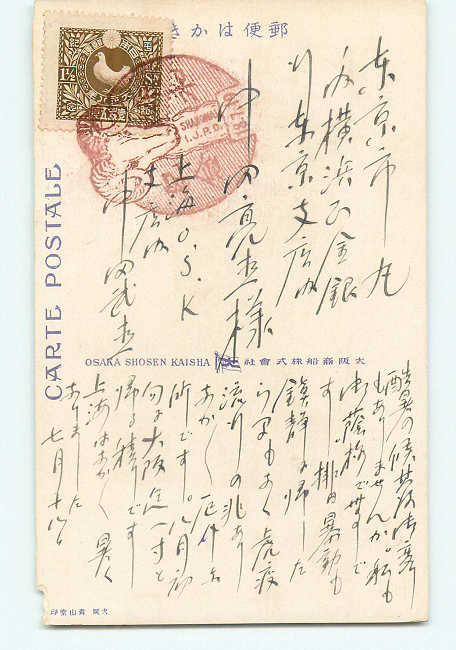 郵便はかき
1½
I.J.P.O.
CARTE POSTALE
東京市丸
内横浜正金銀
行東京支店内
中田亮吉様
上海O.S.K
支店内
中田
OSAKA SHOSEN KAISHA
大阪商船株式會社
酷暑の候其後御変
もありませんか。私も
御蔭様で無事で
す。排日暴動も
鎮静に帰した
虎疫
流行の兆あり
所です。八月初
旬に大阪迄一寸と
帰る積です
上海は 暑く
ありました
七月十八日
大阪 青山堂印